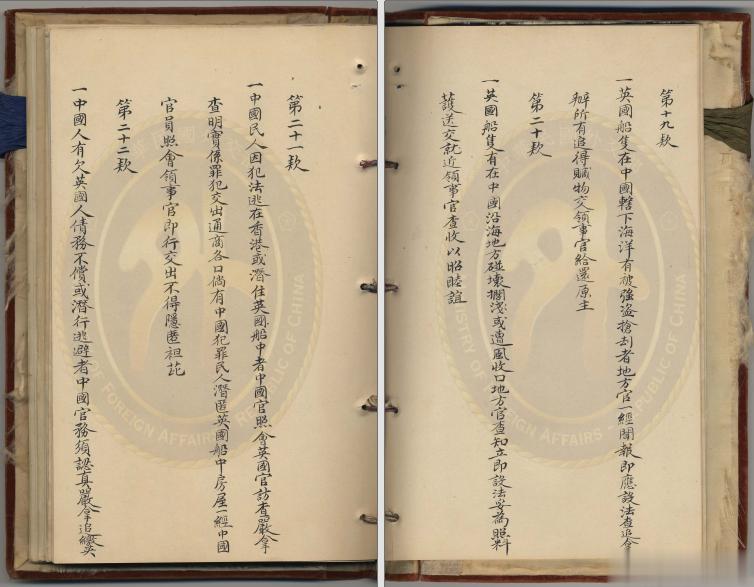 第十九欵
一英國船隻在中國轄下海洋有被強盜搶刦者地方官一經聞報即應設法查追拿
辦所有追得贓物交領事官給還原主
第二十欵
一英國船隻有在中國沿海地方碰壞擱淺或遭風收口地方官查知立即設法妥為照料
護送交就近領事官查收以昭睦誼
第二十一欵
一中國民人因犯法逃在香港或潛住英國船中者中國官照會英國官訪查嚴拿
查明實係罪犯交出通商各口倘有中國犯罪民人潛匿英國船中房屋一經中國
官員照會領事官即行交出不得隱匿袒庇
第二十二欵
一中國人有欠英國人債務不償或潛行逃避者中國官務須認真嚴拿追繳英
MINISTRY OF FOREIGN AFFAIRS - REPUBLIC OF CHINA
OF FOREIGN AFFAIRS - REPUBLIC OF CHINA